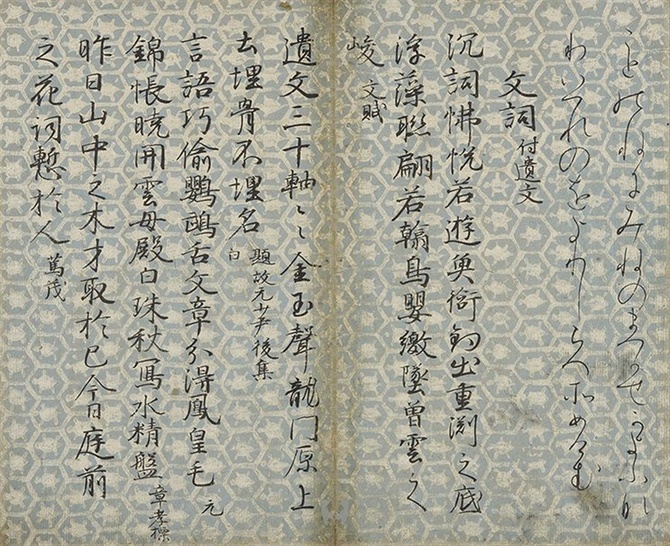 ことのねにみねのまつかせかよふ
いつれのをよりしらへそめけむ
文詞 付遺文
沉詞怫悦若遊魚銜鈎出重淵之底
浮藻聯翩若翰鳥嬰繳墜曾雲之
峻 文賦
遺文三十軸〻〻金玉聲龍門原上
土埋骨不埋名 題故元少尹後集 白
言語巧偷鸚鵡舌文章分得鳳皇毛 元
錦帳曉開雲母殿白珠秋寫水精盤 章孝標
昨日山中之木才取於己今日庭前
之花詞慙於人 篤茂